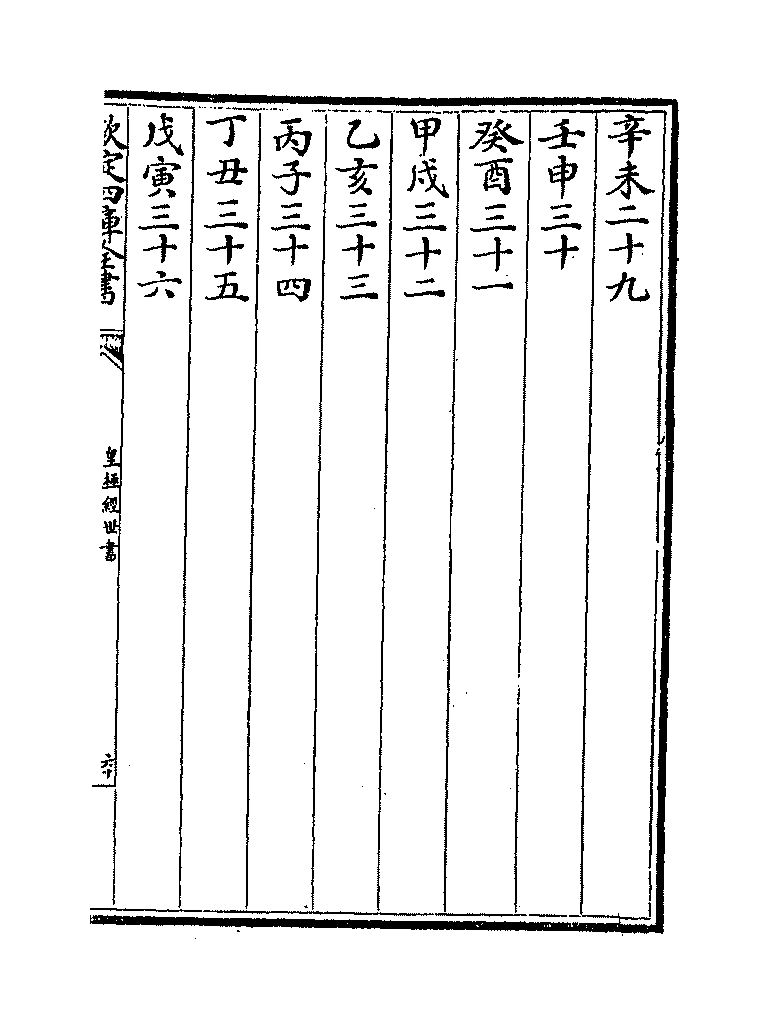 辛未二十九
壬申三十
癸酉三十一
甲戌三十二
乙亥三十三
丙子三十四
丁丑三十五
戊寅三十六
欽定四庫全書
皇極經世書
六十